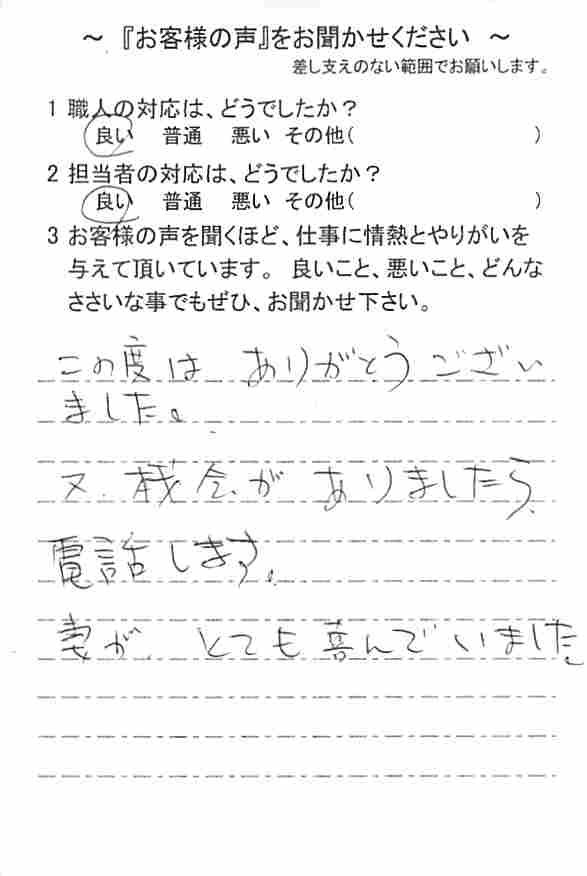 ～ 『お客様の声』をお聞かせください ～
差し支えのない範囲でお願いします。
1 職人の対応は、どうでしたか？
良い 普通 悪い その他( )
2 担当者の対応は、どうでしたか？
良い 普通 悪い その他( )
3 お客様の声を聞くほど、仕事に情熱とやりがいを
与えて頂いています。 良いこと、悪いこと、どんな
ささいな事でもぜひ、お聞かせ下さい。
この度は ありがとうござい
ました。
又、機会が ありましたら
電話します。
妻が、とても喜んでいました。